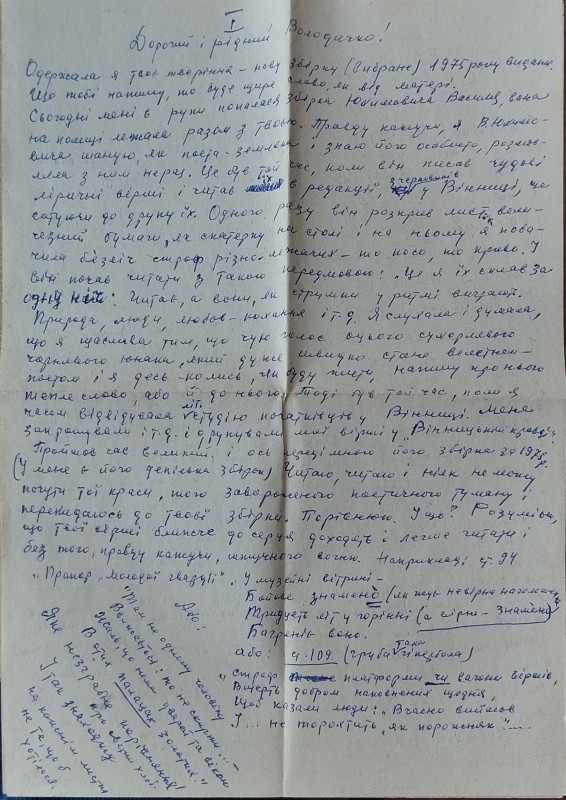 I
Дорогий і рідний Володичко!
Одержала я твоє творіння – нову збірку (Вибране) 1975 року видання.
Що тобі напишу, то буде щире слово, як від матері.
Сьогодні мені в руки попалася збірка Юхимовича Василя, вона
на полиці лежала разом з твоєю. Правду кажучи, я В. Юхимо-
вича шаную, як поета-земляка і знаю його особисто, розмов-
ляла з ним нераз. Це був той час, коли він писав чудові
ліричні вірші і читав їх в редакції, у Вінниці, що
готуючи до друку їх. Одного разу він розкрив лист вели-
чезний бумаги, як скатерку на столі і на ньому я поба-
чила безліч строф різно-лежачих – то косо, то криво. І
він почав читати з такою передмовою: „Це я їх склав за
одну ніч". Читав, а вони, як струмки у ритмі виграють.
Природа, люди, любов-кохання і т.д. Я слухала і думала,
що я щаслива тим, що чую голос оцього сухорлявого
чорнявого юнака, який дуже швидко стане велетнем-
поетом і я десь-колись, як буду жити, напишу про нього
тепле слово, або й до нього. Тоді був той час, коли я
часом відвідувала літ. студію початківців у Вінниці. Мене
запрошували і т.д. і друкували мої вірші у „Вінницькій правді".
Пройшов час великий і ось переді мною його збірка за 1975 р.
(У мене є його декілька збірок) Читаю, читаю і ніяк не можу
почути тої краси, того завороженого поетичного туману і
перекидаюсь до твоєї збірки. Порівнюю. І що? Розумієш,
що твої вірші ближче до серця доходять і легше читати і
без того, правду кажучи, штучного вогню. Наприклад: ст. 94
„Прапор „Молодої гвардії" „У музейній вітрині –
Бойове знамено (лежить невірно наголошено)
Тридцять літ у горінні (а вірно – знамено)
Багреніє воно.
або: ч. 109. (груба така гіпербола)
„строф платформи чи вагони віршів,
Вщерть добром наповнення щодня,
Щоб казали люди: „Вчасно вийшов
І... не торохтить, як порожняк"...
Або:
"Там не одному чоловіку
В отих палацах золотих."
Яке нездорове порівняння!
про
І так знаходжу
на кожнім листи
не те, щоб
хотілося.